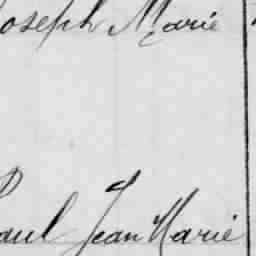 Joseph Marie
Paul Jean Marie